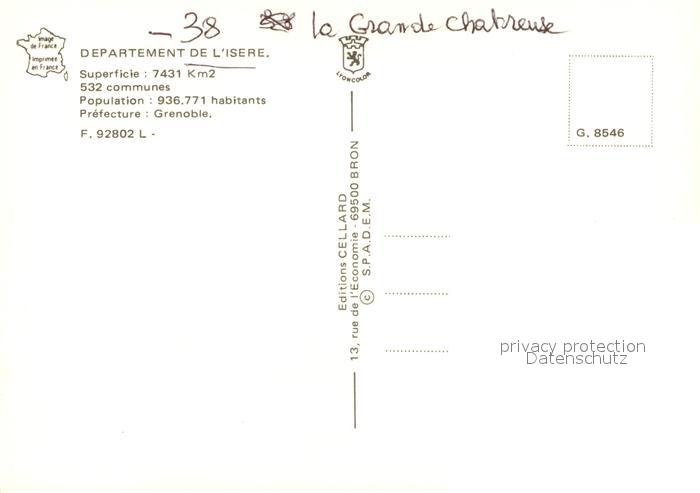 - 38 la Grande Chatreuse
Image
de France
Imprimée
en France
DEPARTEMENT DE L'ISERE.
Superficie : 7431 Km2
532 communes
Population : 936.771 habitants
Préfecture : Grenoble.
F. 92802 L -
LYONCOLOR
G. 8546
Editions CELLARD
13, rue de l'Economie - 69500 BRON
© S.P.A.D.E.M.
privacy protection
Datenschutz